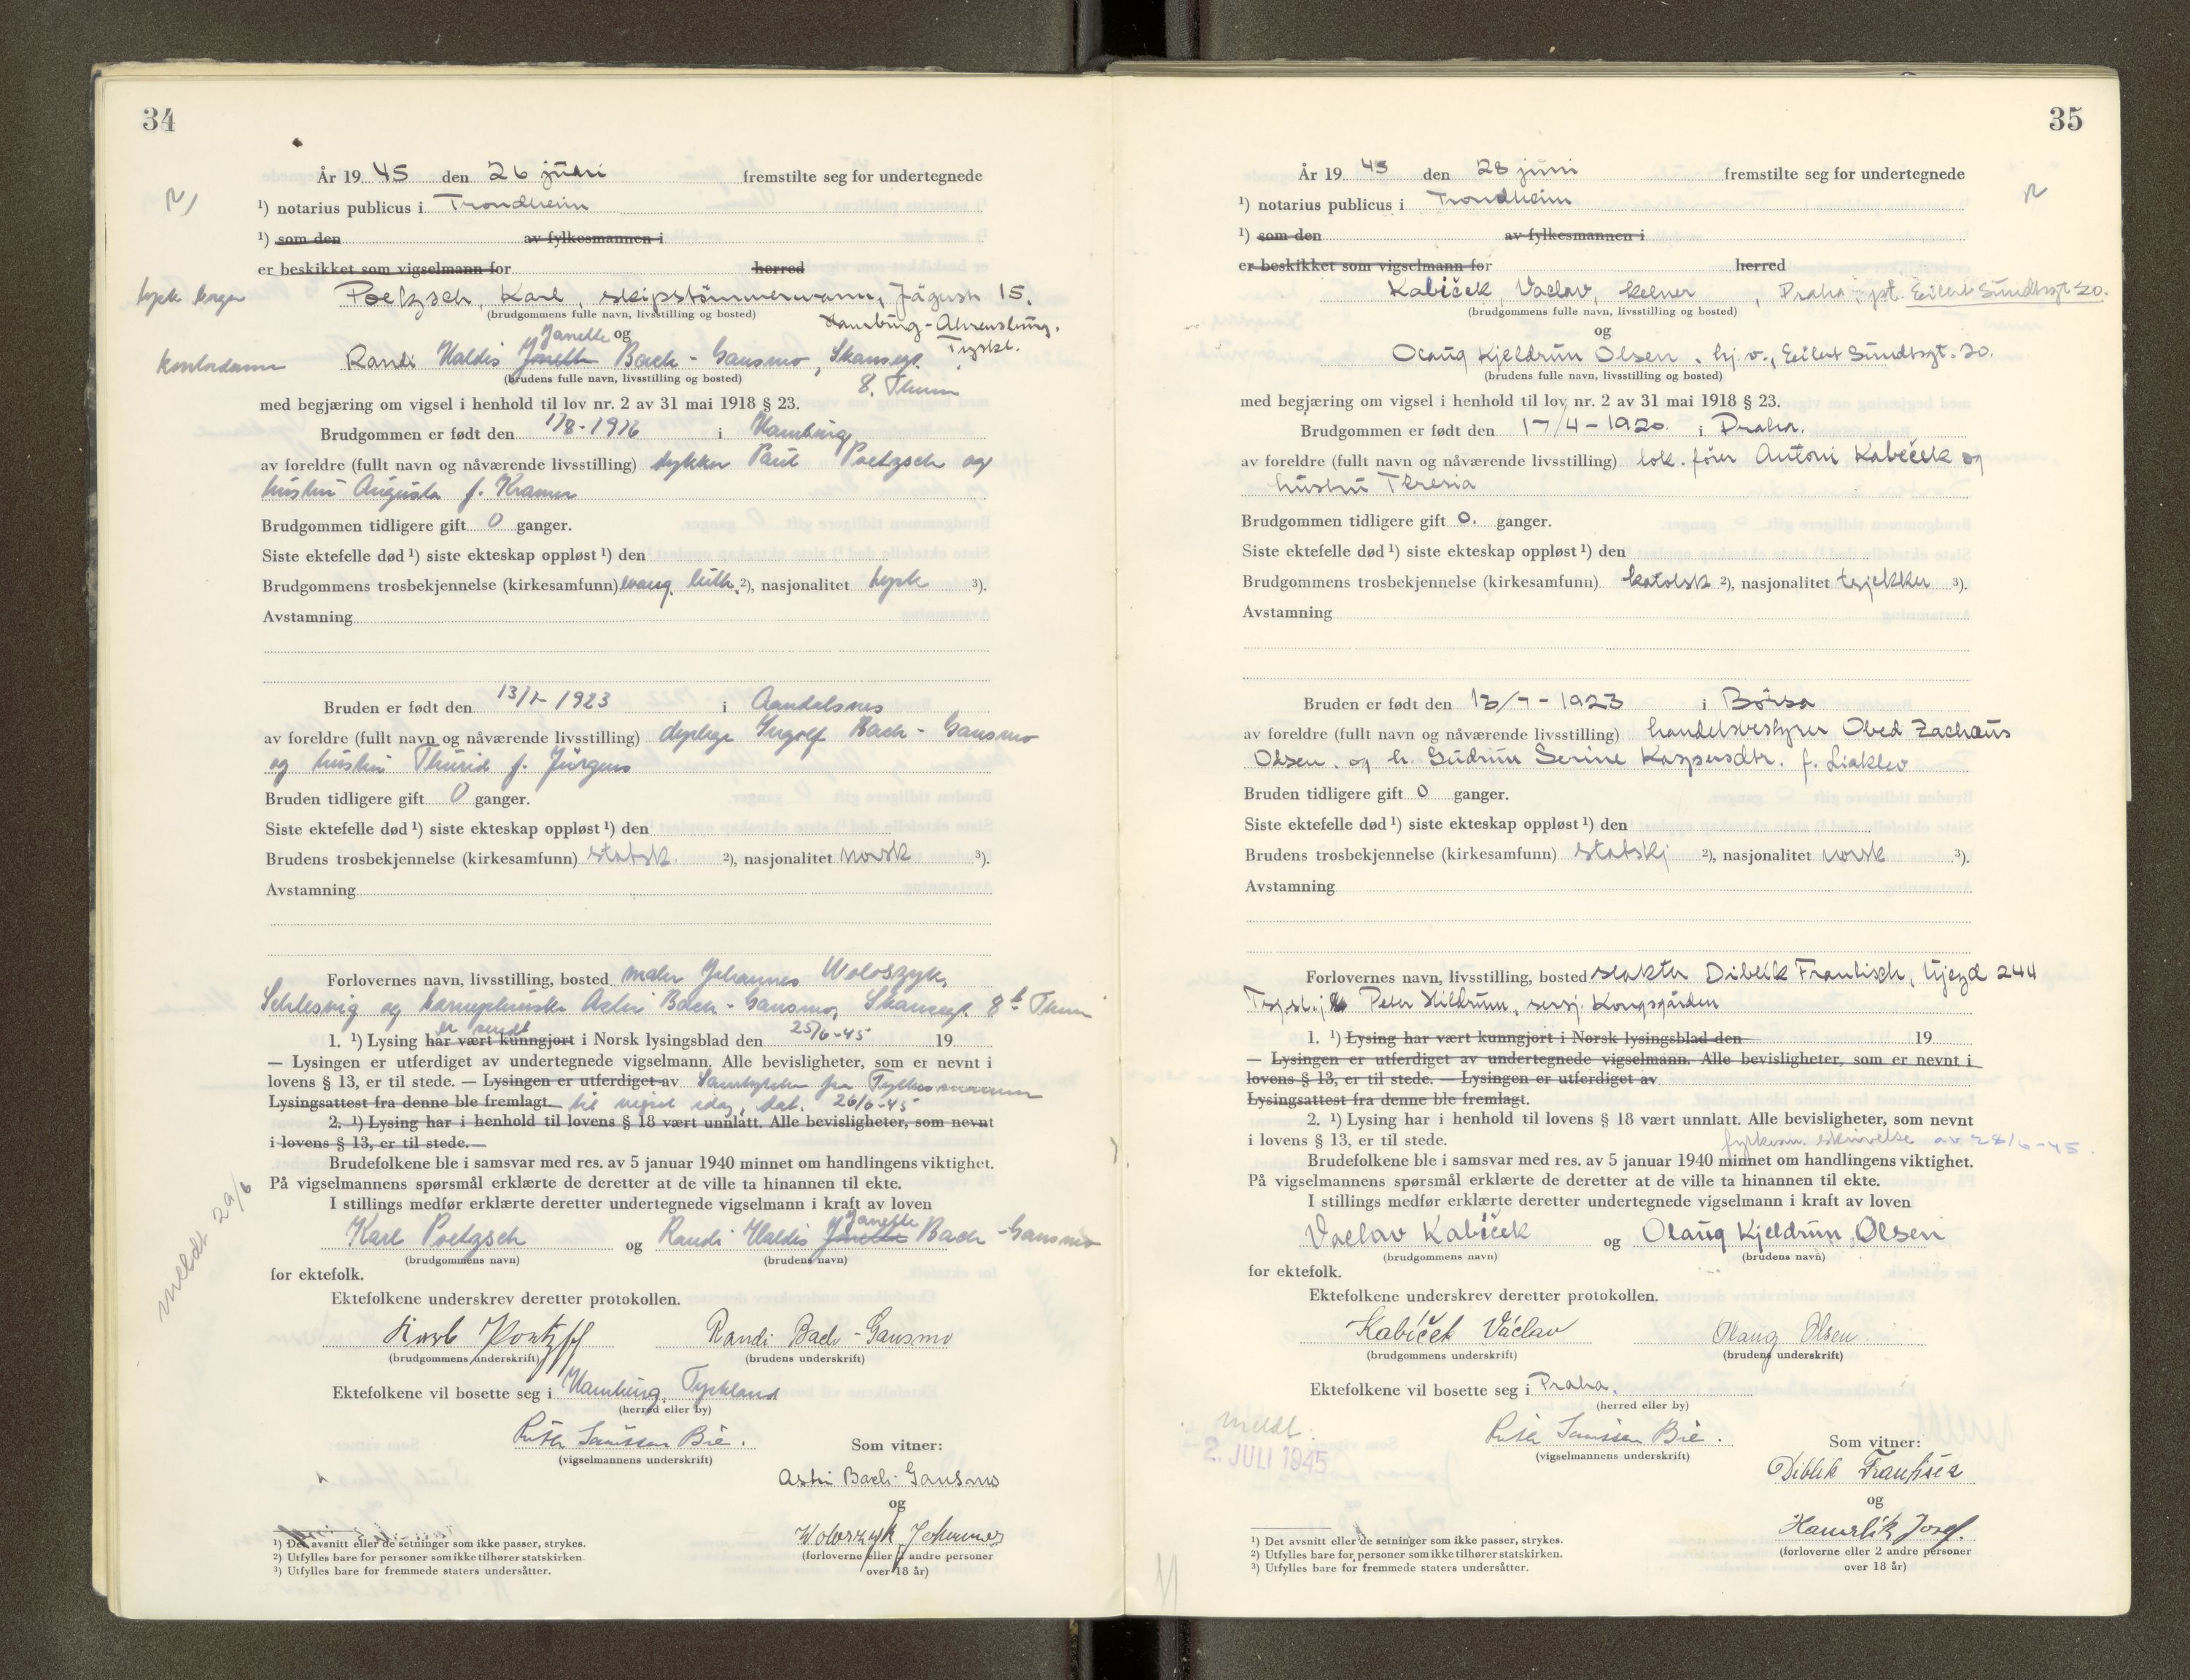 34
År 1945 den 26 juni fremstilte seg for undertegnede
¹) notarius publicus i Trondheim
¹) som den av fylkesmannen i
er beskikket som vigselmann for herred
tysk borger Poetzsch, Karl, skipstömmermann, Jägerstr 15,
(brudgommens fulle navn, livsstilling og bosted) Hamburg-Ahrensburg,
Janette og Tyskl.
kontordame Randi Haldis Janette Bach-Gansmo, Skansegt.
(brudens fulle navn, livsstilling og bosted) 8. Thm
med begjæring om vigsel i henhold til lov nr. 2 av 31 mai 1918 § 23.
Brudgommen er født den 1/8-1916 i Hamburg
av foreldre (fullt navn og nåværende livsstilling) dykker Paul Poetzsch og
hustru Augusta f. Kramer
Brudgommen tidligere gift 0 ganger.
Siste ektefelle død ¹) siste ekteskap oppløst ¹) den
Brudgommens trosbekjennelse (kirkesamfunn) evang. luth. ²), nasjonalitet tysk ³).
Avstamning
Bruden er født den 1923 i Aandalsnes
av foreldre (fullt navn og nåværende livsstilling) Ingolf Bach-Gansmo
og hustru Thurid f. Jürgens
Bruden tidligere gift 0 ganger.
Siste ektefelle død ¹) siste ekteskap oppløst ¹) den
Brudens trosbekjennelse (kirkesamfunn) statsk. ²), nasjonalitet norsk ³).
Avstamning
Forlovernes navn, livsstilling, bosted maler Johannes Woloszyk,
Schlesvig og Astri Bach-Gansmo, Skansegt. 8 Thm
er sendt
1. ¹) Lysing har vært kunngjort i Norsk lysingsblad den 25/6-45 19
— Lysingen er utferdiget av undertegnede vigselmann. Alle bevisligheter, som er nevnt i
lovens § 13, er til stede. — Lysingen er utferdiget av Samtykke fra Fylkesmannen
Lysingsattest fra denne ble fremlagt. til vigsel idag, dat. 26/6-45
2. ¹) Lysing har i henhold til lovens § 18 vært unnlatt. Alle bevisligheter, som nevnt
i lovens § 13, er til stede.—
Brudefolkene ble i samsvar med res. av 5 januar 1940 minnet om handlingens viktighet.
På vigselmannens spørsmål erklærte de deretter at de ville ta hinannen til ekte.
I stillings medfør erklærte deretter undertegnede vigselmann i kraft av loven
Janette
Karl Poetzsch og Randi Haldis Janette Bach-Gansmo
(brudgommens navn) (brudens navn)
for ektefolk.
meldt 29/6
Ektefolkene underskrev deretter protokollen.
Karl Poetzsch Randi Bach-Gansmo
(brudgommens underskrift) (brudens underskrift)
Ektefolkene vil bosette seg i Hamburg, Tyskland
(herred eller by)
Ruth Sanissen Bie. Som vitner:
(vigselmannens underskrift)
Astri Bach-Gansmo
og
Woloszyk Johannes
¹) Det avsnitt eller de setninger som ikke passer, strykes.
²) Utfylles bare for personer som ikke tilhører statskirken.
³) Utfylles bare for fremmede staters undersåtter.
(forloverne eller 2 andre personer
over 18 år)
35
År 1945 den 28 juni fremstilte seg for undertegnede
¹) notarius publicus i Trondheim
¹) som den av fylkesmannen i
er beskikket som vigselmann for herred
Kabíček, Vaclav, kelner, Praha, pt. Eilert Sundtsgt 20.
(brudgommens fulle navn, livsstilling og bosted)
og
Olaug Kjeldrun Olsen, hj.v., Eilert Sundtsgt. 20.
(brudens fulle navn, livsstilling og bosted)
med begjæring om vigsel i henhold til lov nr. 2 av 31 mai 1918 § 23.
Brudgommen er født den 17/4-1920 i Praha.
av foreldre (fullt navn og nåværende livsstilling) lok. fører Antoni Kabíček og
hustru Theresia
Brudgommen tidligere gift 0. ganger.
Siste ektefelle død ¹) siste ekteskap oppløst ¹) den
Brudgommens trosbekjennelse (kirkesamfunn) katolsk ²), nasjonalitet tsjekker ³).
Avstamning
Bruden er født den 13/7-1923 i Börsa
av foreldre (fullt navn og nåværende livsstilling) handelsbestyrer Obed Zachæus
Olsen. og h. Gudrun Serine Kaspersdtr. f. Liaklev
Bruden tidligere gift 0 ganger.
Siste ektefelle død ¹) siste ekteskap oppløst ¹) den
Brudens trosbekjennelse (kirkesamfunn) statskj ²), nasjonalitet norsk ³).
Avstamning
Forlovernes navn, livsstilling, bosted slakter Diblik Frantisek, Ujezd 244
Tsj.sl. Peter Hildrum, sersj. Kongsgården
1. ¹) Lysing har vært kunngjort i Norsk lysingsblad den 19
— Lysingen er utferdiget av undertegnede vigselmann. Alle bevisligheter, som er nevnt i
lovens § 13, er til stede. — Lysingen er utferdiget av
Lysingsattest fra denne ble fremlagt.
2. ¹) Lysing har i henhold til lovens § 18 vært unnlatt. Alle bevisligheter, som nevnt
i lovens § 13, er til stede. fylkesm. skrivelse av 28/6-45.
Brudefolkene ble i samsvar med res. av 5 januar 1940 minnet om handlingens viktighet.
På vigselmannens spørsmål erklærte de deretter at de ville ta hinannen til ekte.
I stillings medfør erklærte deretter undertegnede vigselmann i kraft av loven
Vaclav Kabíček og Olaug Kjeldrun Olsen
(brudgommens navn) (brudens navn)
for ektefolk.
Ektefolkene underskrev deretter protokollen.
Kabíček Václav Olaug Olsen
(brudgommens underskrift) (brudens underskrift)
Ektefolkene vil bosette seg i Praha.
(herred eller by)
meldt
2. JULI 1945
Ruth Sanissen Bie. Som vitner:
(vigselmannens underskrift)
Diblik Frantisek
og
Hamrlik Josef.
¹) Det avsnitt eller de setninger som ikke passer, strykes.
²) Utfylles bare for personer som ikke tilhører statskirken.
³) Utfylles bare for fremmede staters undersåtter.
(forloverne eller 2 andre personer
over 18 år)